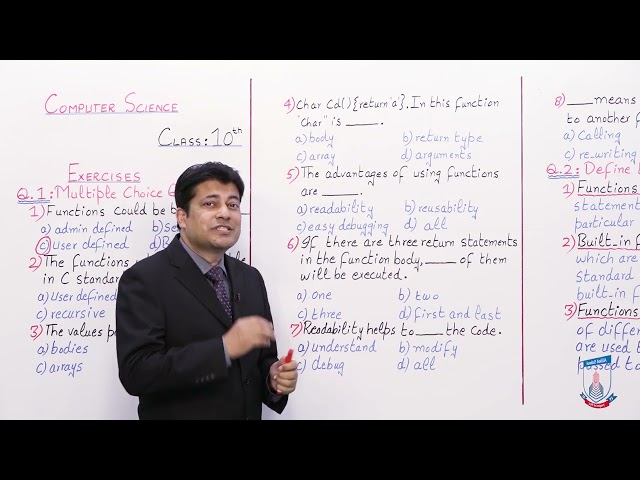 COMPUTER SCIENCE
CLASS: 10th
EXERCISES
Q.1: Multiple Choice
1) Functions could be
a) admin defined b)
c) User defined d)
2) The functions
in C standard
a) User defined
c) recursive
3) The values
a) bodies
c) arrays
4) Char Cd(){return 'a'}. In this function
"Char" is ____.
a) body b) return type
c) array d) arguments
5) The advantages of using functions
are ____.
a) readability b) reusability
c) easy debugging d) all
6) If there are three return statements
in the function body, ____ of them
will be executed.
a) one b) two
c) three d) first and last
7) Readability helps to ____ the Code.
a) understand b) modify
c) debug d) all
8) ____ means
to another
a) Calling
c) re_writing
Q.2: Define
1) Functions
statement
particular
2) Built_in
which are
standard
built_in
3) Functions
of
are used
passed to